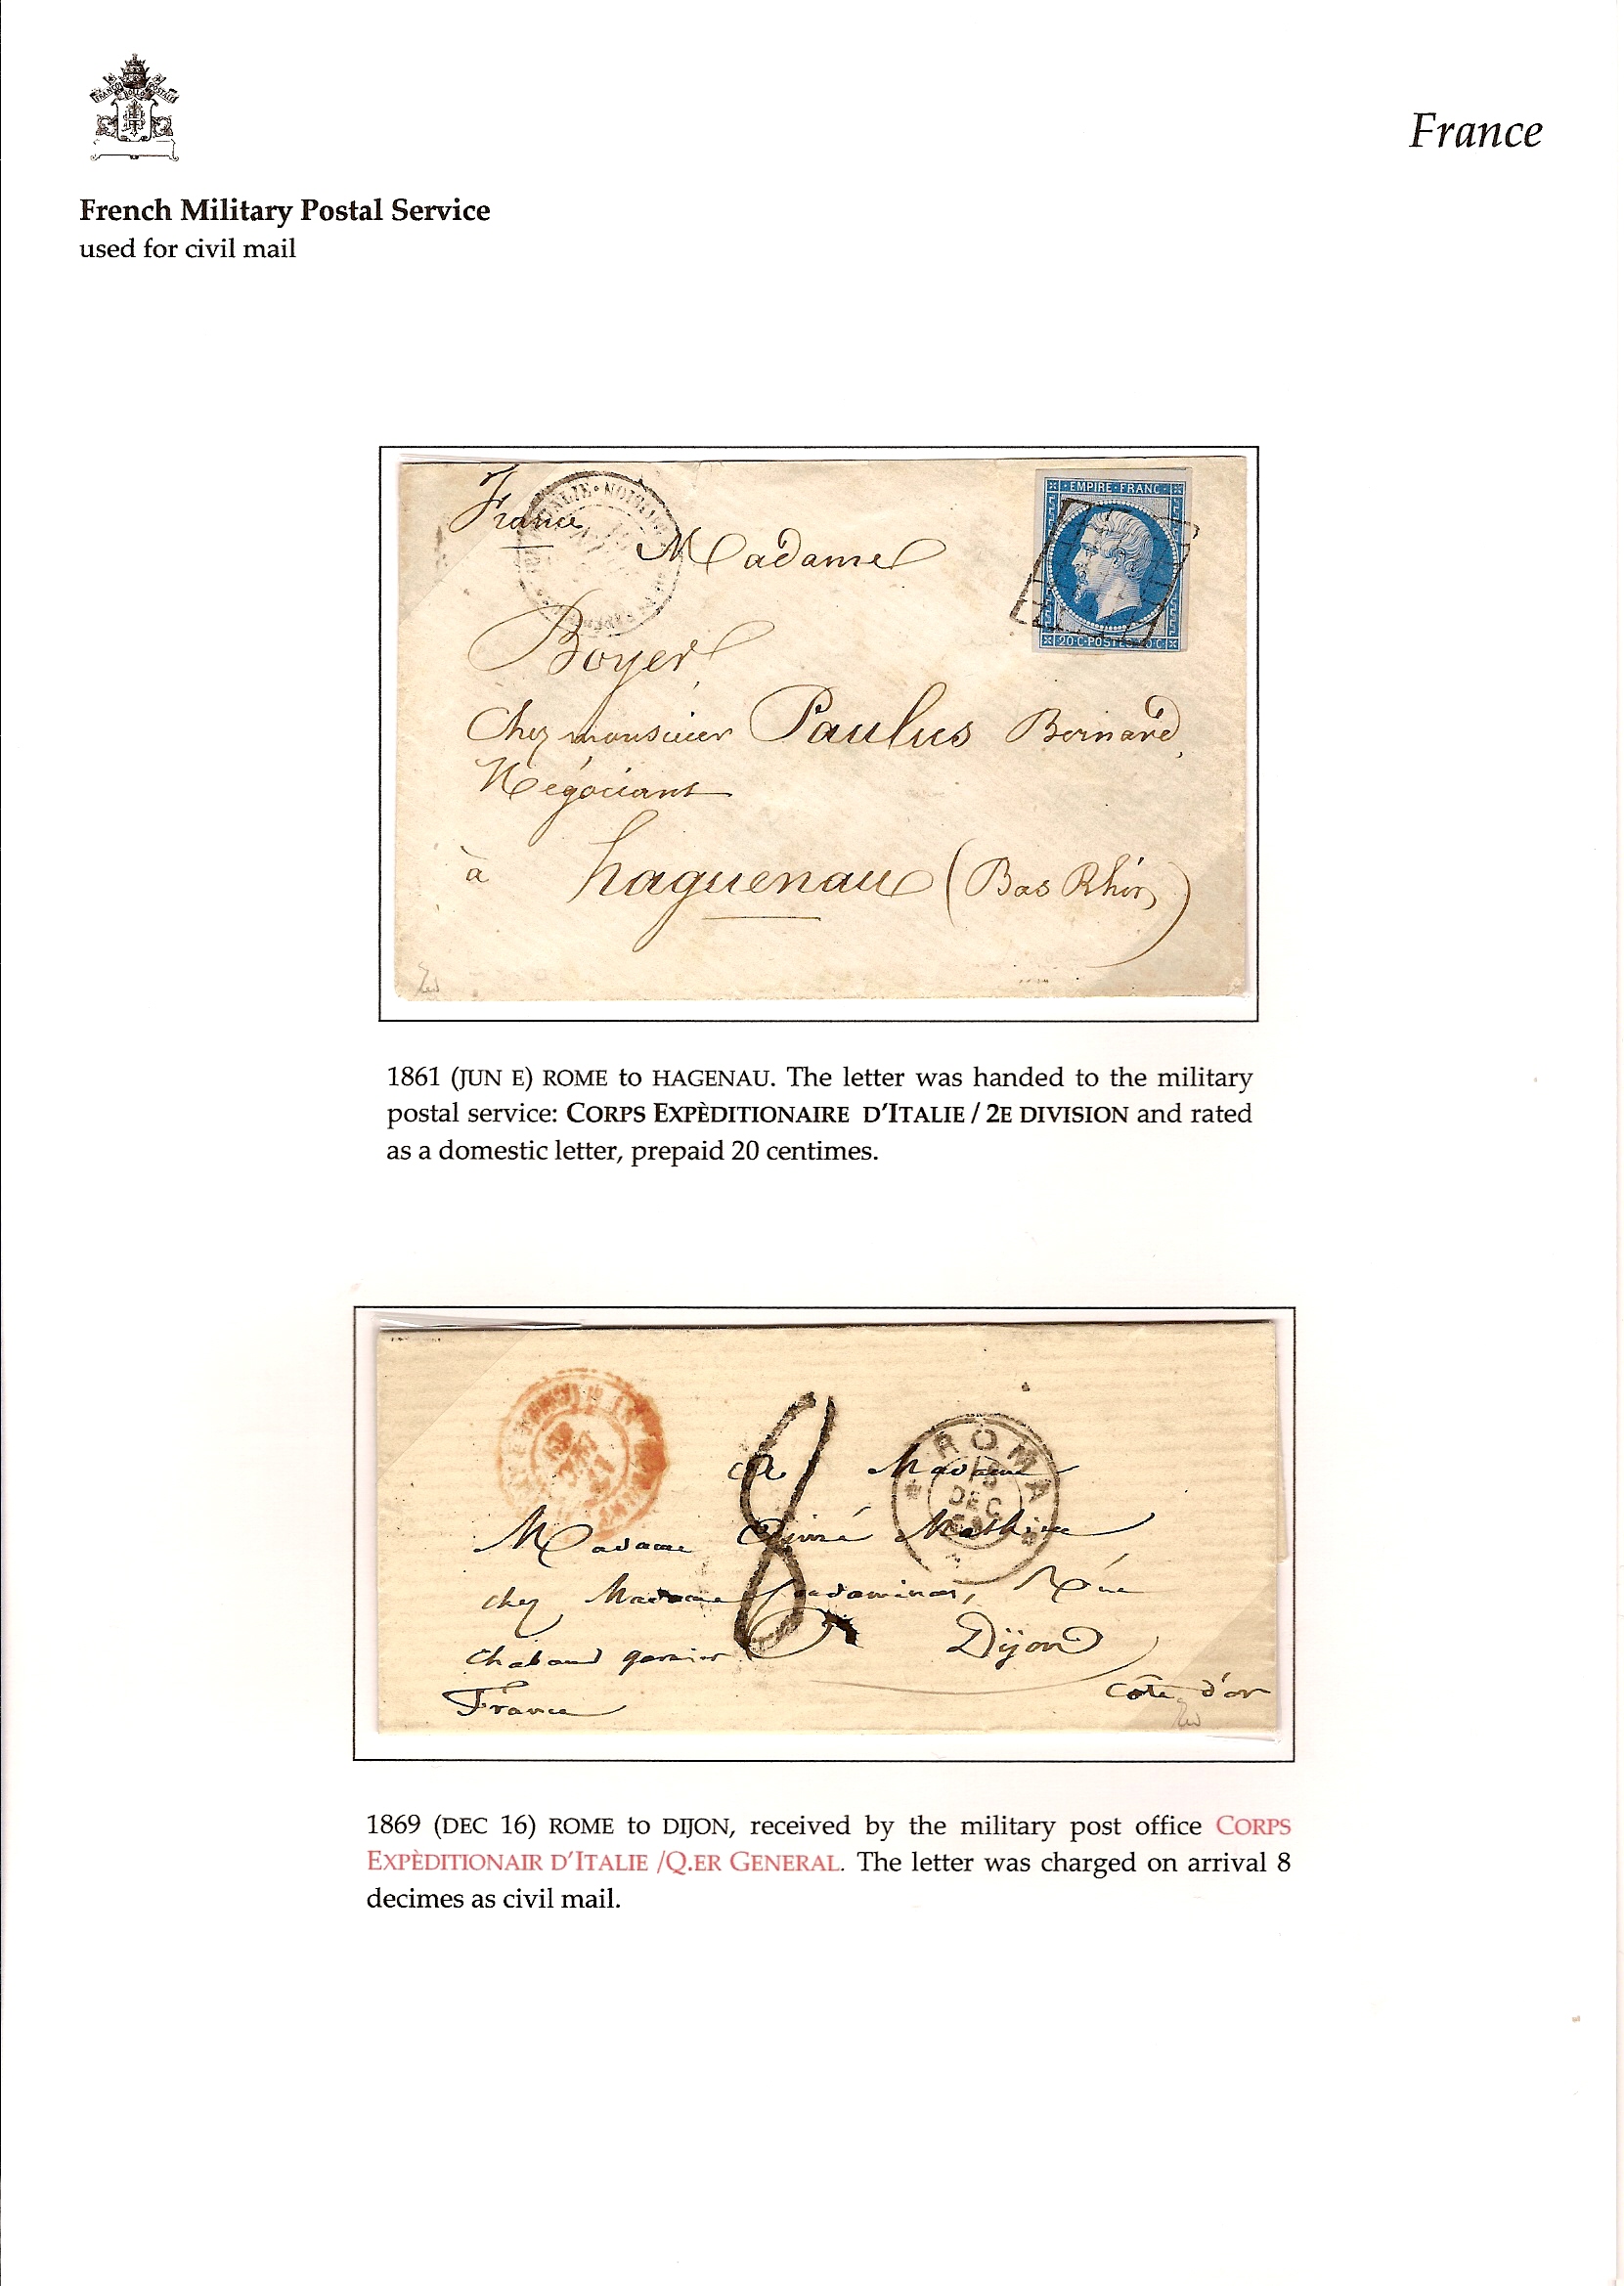 FRANCO BOLLO POSTALE
France
French Military Postal Service
used for civil mail
France
Madame
EMPIRE FRANC
20 C POSTES 20 C
Boyer
Chez monsieur Paulus Bernard
Négociant
à haguenau (Bas Rhin)
1861 (JUN E) ROME to HAGENAU. The letter was handed to the military
postal service: CORPS EXPÈDITIONAIRE D'ITALIE / 2E DIVISION and rated
as a domestic letter, prepaid 20 centimes.
8
ROMA
DEC
Madame
Madame Mathieu
chez Madame
Dijon
France
Cote d'or
1869 (DEC 16) ROME to DIJON, received by the military post office CORPS
EXPÈDITIONAIR D'ITALIE /Q.ER GENERAL. The letter was charged on arrival 8
decimes as civil mail.